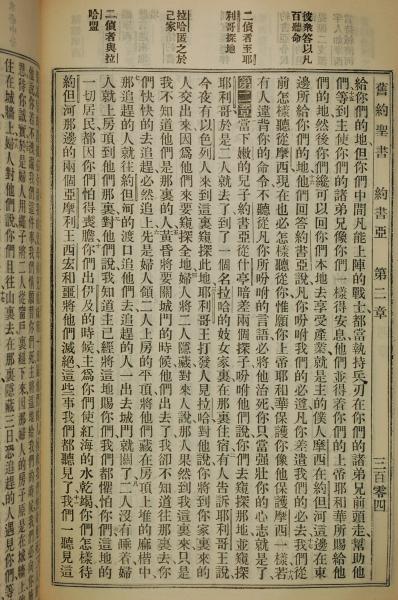 舊約聖書 約書亞 第二章 三百零四
彼眾答以凡
百聽命
二偵者至耶
利哥探地
拉哈匿之於
己家
二偵者與拉
哈盟
給你們的地但你們中間凡能上陣的戰士都當執持兵刃在你們的諸弟兄前頭走幫助他
們等到主使你們的諸弟兄像你們一樣得安息他們並得着你們的上帝耶和華所賜給他
們的地然後你們纔可以回你們本地去享受產業就是主的僕人摩西在約但河這邊在東
邊所給你們的地他們回答約書亞說凡你吩咐我們的必遵凡你差遣我們的必去我們從
前怎樣聽從摩西現在也必怎樣聽從你惟願你上帝耶和華保護你像他保護摩西一樣若
有人違背你的命令不聽從凡你所吩咐的言語必將他治死你只當強壯你的心志就是了
第二章當下嫩的兒子約書亞從什亭暗差兩個探子吩咐他們說你們去窺探那地並窺探
耶利哥於是二人就去了到了一個名拉哈的妓女家裏在那裏住宿有人告訴耶利哥王說
今夜有以色列人來到這裏窺探此地耶利哥王打發人見拉哈對他說你將到你家裏來的
人交出來因為他們來要窺探全地婦人將二人隱藏對來人說那人果然到我這裏來只是
我不知道他們是那裏的人黃昏將要關城門的時候他們出去了我卻不知道往那裏去你
們快快的去追趕必然追上先是婦人領二人上房的平頂將他們藏在房頂上堆的麻楷中
那追趕的人就往約但河的渡口追他們去追趕的人一出去城門就關了二人沒有睡着婦
人就上房頂到他們那裏對他們說我知道主已經將這地賜你們我們都懼怕你們這地的
一切居民都因你們怕得喪膽你們出伊及的時候主為你們使紅海的水乾竭你們怎樣待
約但河那邊的兩個亞摩利王西宏和噩將他們滅絕這些事我們都聽見了我們一聽見這
想待你誠實於是婦人用繩子將二人從窗戶裏縋下來因那婦人的房子原是在城牆上
住在城牆上婦人對他們說你們且往山裏去在那裏隱藏三日追趕的人遇見你們等